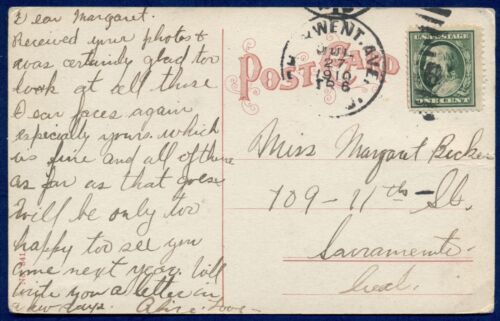 Dear Margaret.
Received your photos &
was certainly glad too
look at all those
Dear faces again
especially yours which
is fine and all of them
as far as that goes.
Will be only too
happy too see you
come next year. Will
write you a letter in
a few days. Alice. Love-
POST CARD
WENT AVE.
JUL
27
1910
U.S. POSTAGE
ONE CENT
Miss Margaret Becker
709-11th St.
Sacramento
Cal.
No. 641